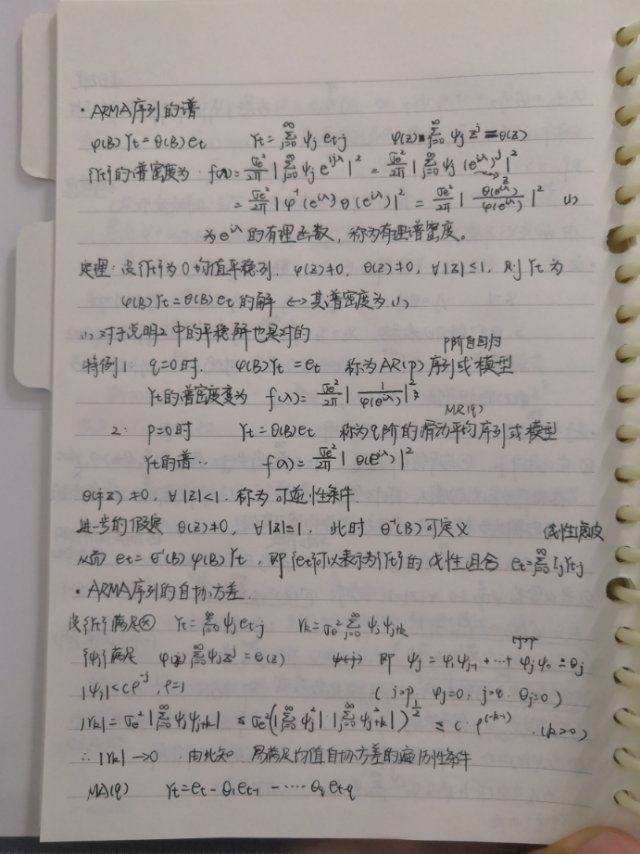 · ARMA序列的谱
φ(B)Yt = θ(B)et   Yt = Σ_{j=0}^{∞} ψj et-j   φ(z) Σ_{j=0}^{∞} ψj z^j = θ(z)
{Yt}的谱密度为 f(λ) = σe²/2π |Σ_{j=0}^{∞} ψj e^{ijλ}|² = σe²/2π |Σ_{j=0}^{∞} ψj (e^{iλ})^j|²
= σe²/2π |φ⁻¹(e^{iλ}) θ(e^{iλ})|² = σe²/2π |θ(e^{iλ})/φ(e^{iλ})|²   (1)
为e^{iλ}的有理函数，称为有理谱密度。
定理：设{Yt}为0均值平稳列，φ(z)≠0，θ(z)≠0，∀|z|≤1，则Yt为
φ(B)Yt = θ(B)et的解 ↔ 其谱密度为(1)
(1)对于说明2中的平稳解也是对的
p阶自回归
特例1：q=0时，φ(B)Yt = et 称为AR(p)序列或模型
Yt的谱密度为 f(λ) = σe²/2π |1/φ(e^{iλ})|²
MA(q)
2：p=0时 Yt = θ(B)et 称为q阶的滑动平均序列或模型
Yt的谱‥ f(λ) = σe²/2π |θ(e^{iλ})|²
θ(z)≠0，∀|z|<1．称为可逆性条件
进一步的假定 θ(z)≠0，∀|z|=1，此时 θ⁻¹(B)可定义 线性
从而 et = θ⁻¹(B)φ(B)Yt，即{et}可以表示为{Yt}的线性组合 et = Σ_{j=0}^{∞} Ij Yt-j
· ARMA序列的自协方差．
设{Yt}满足 Yt = Σ_{j=0}^{∞} ψj et-j   rk = σe² Σ_{j=0}^{∞} ψj ψj+k
{ψj}满足 φ(z) Σ_{j=0}^{∞} ψj z^j = θ(z) 即 ψj = φ1 ψj-1 + ⋯ + φj ψ0 - θj
|ψj| < cρ^{-j}，ρ>1   (j>p，φj=0；j>q，θj=0)
|rk| = σe² |Σ_{j=0}^{∞} ψj ψj+k| ≤ σe² (|Σ_{j=0}^{∞} ψj²| |Σ_{j=0}^{∞} ψ²j+k|)^{1/2} ≤ c·ρ^{(-k)}．(k≥0)
∴ |rk| → 0 由此知 易满足均值自协方差的遍历性条件
MA(q)   Yt = et - θ1et-1 - ⋯⋯ θq et-q